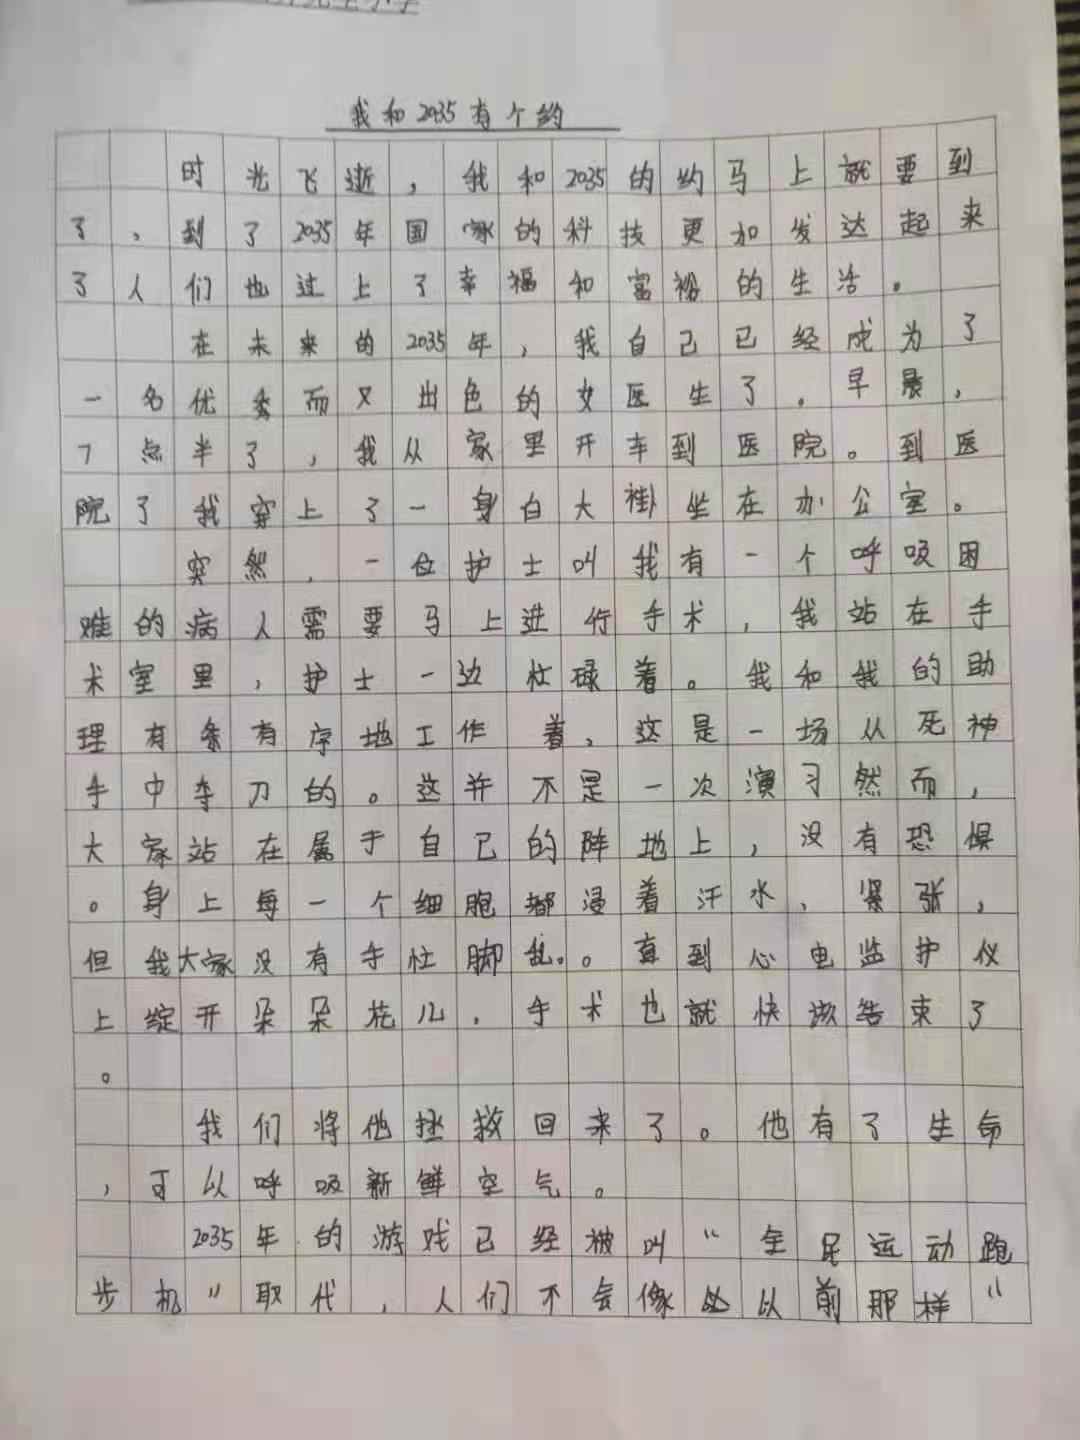 我和2035有个约
时光飞逝，我和2035的约马上就要到
了，到了2035年国家的科技更加发达起来
了人们也过上了幸福和富裕的生活。
在未来的2035年，我自己已经成为了
一名优秀而又出色的女医生了。早晨，
7点半了，我从家里开车到医院。到医
院了我穿上了一身白大褂坐在办公室。
突然，一位护士叫我有一个呼吸困
难的病人需要马上进行手术，我站在手
术室里，护士一边忙碌着。我和我的助
理有条有序地工作着，这是一场从死神
手中夺刀的。这并不是一次演习然而，
大家站在属于自己的阵地上，没有恐惧
。身上每一个细胞都浸着汗水，紧张，
但我大家没有手忙脚乱。。直到心电监护仪
上绽开朵朵花儿，手术也就快该结束了
。
我们将他拯救回来了。他有了生命
，可以呼吸新鲜空气。
2035年的游戏已经被叫“全民运动跑
步机”取代，人们不会像以前那样“